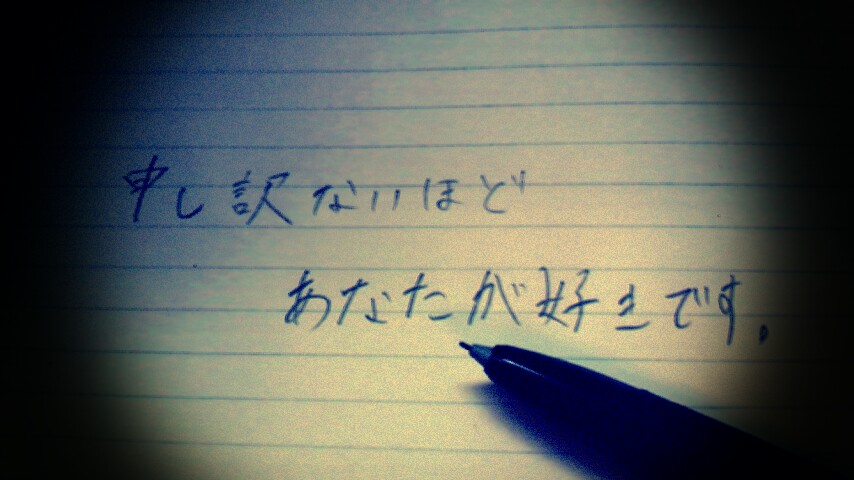 申し訳ないほど
あなたが好きです.